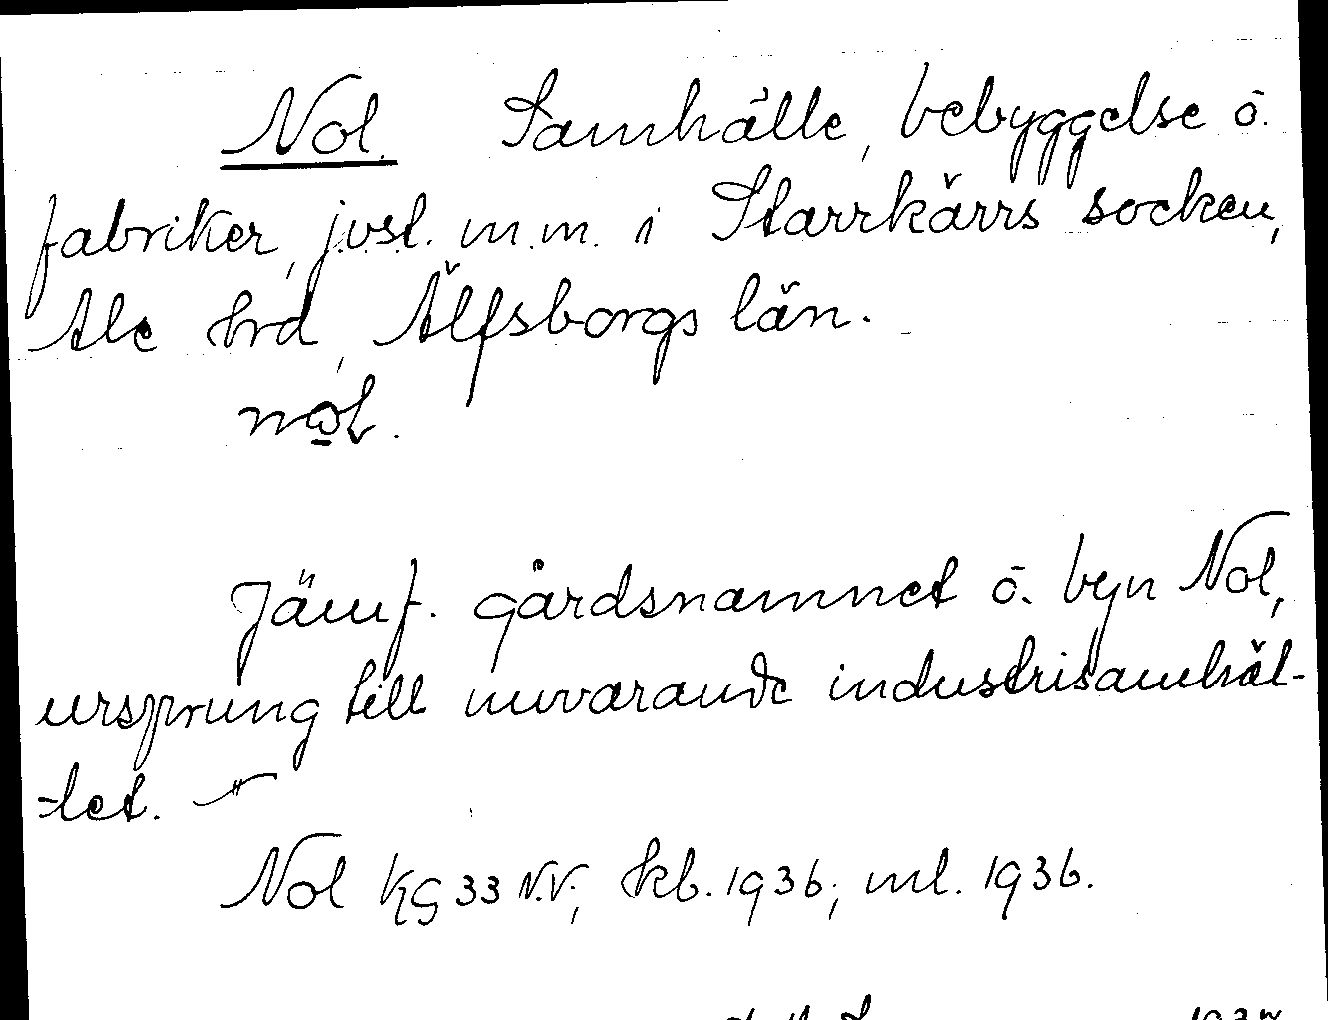 Nol. Samhälle, bebyggelse o.
fabriker, jvst. m.m. i Starrkärrs socken,
Ale hrd, Älfsborgs län.
Jämf. gårdsnamnet o. byn Nol,
ursprung till nuvarande industrisamhäl-
-let.
Nol KG 33 N.V.; kb. 1936; ml. 1936.